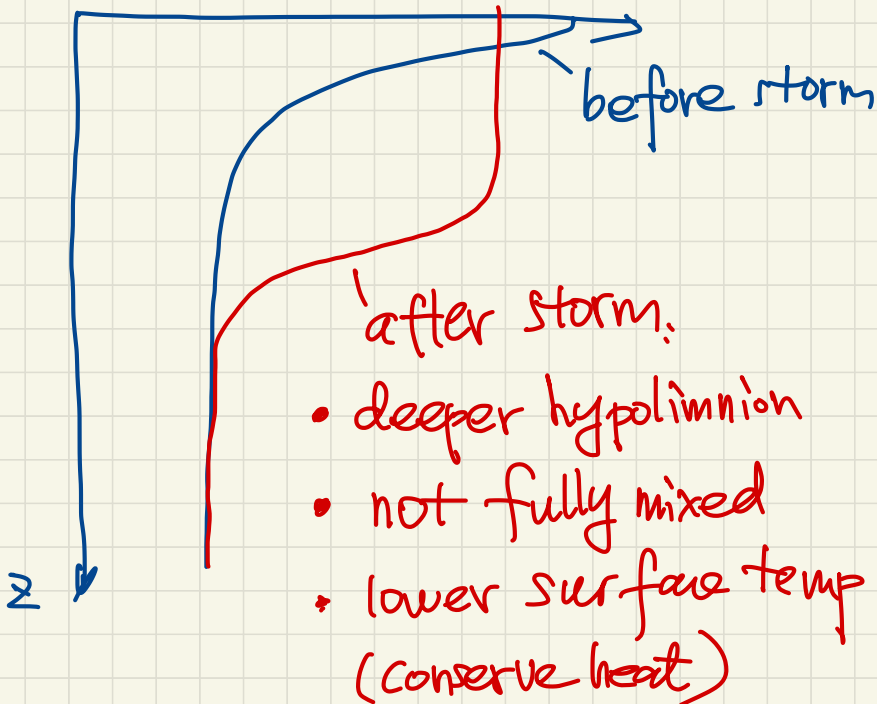 before storm
after storm:
• deeper hypolimnion
• not fully mixed
• lower surface temp
(conserve heat)
z